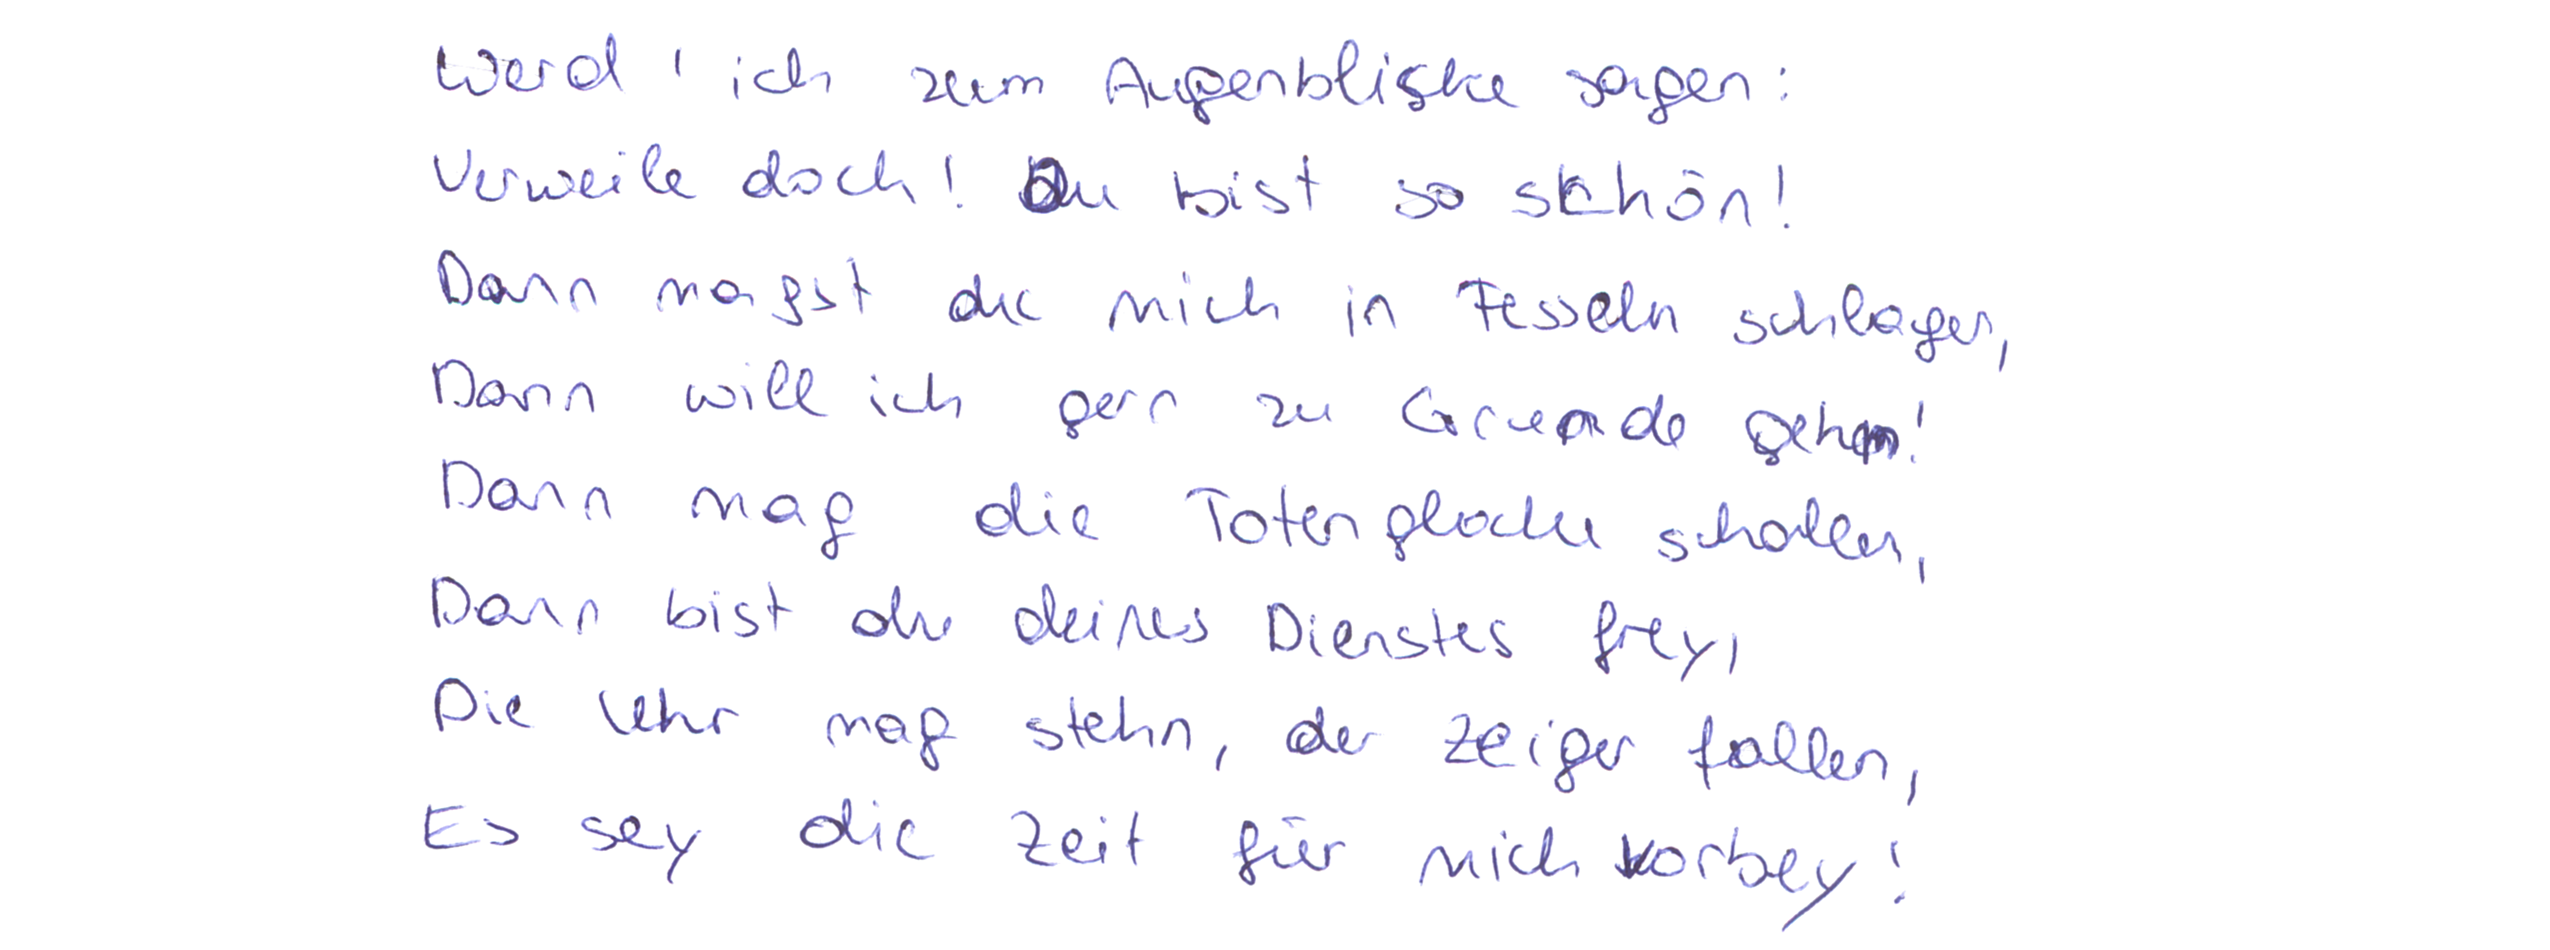 Werd' ich zum Augenblicke sagen:
Verweile doch! Du bist so schön!
Dann magst du mich in Fesseln schlagen,
Dann will ich gern zu Grunde gehn!
Dann mag die Totenglocke schallen,
Dann bist du deines Dienstes frey,
Die Uhr mag stehn, der Zeiger fallen,
Es sey die Zeit für mich vorbey!